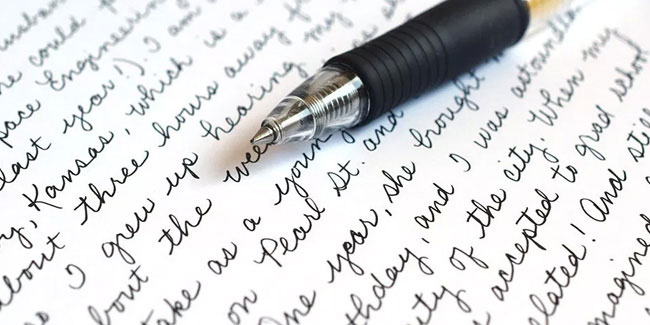 he could
pace Engineering
last year!). I am
y, Kansas, which is a
about three hours away f
I grew up hearing my
bout the wee
take as a young
on Pearl St. and
One year, she brought m
thday, and I was astounde
ty of the city. When my
accepted to grad school
elated! And still
magined